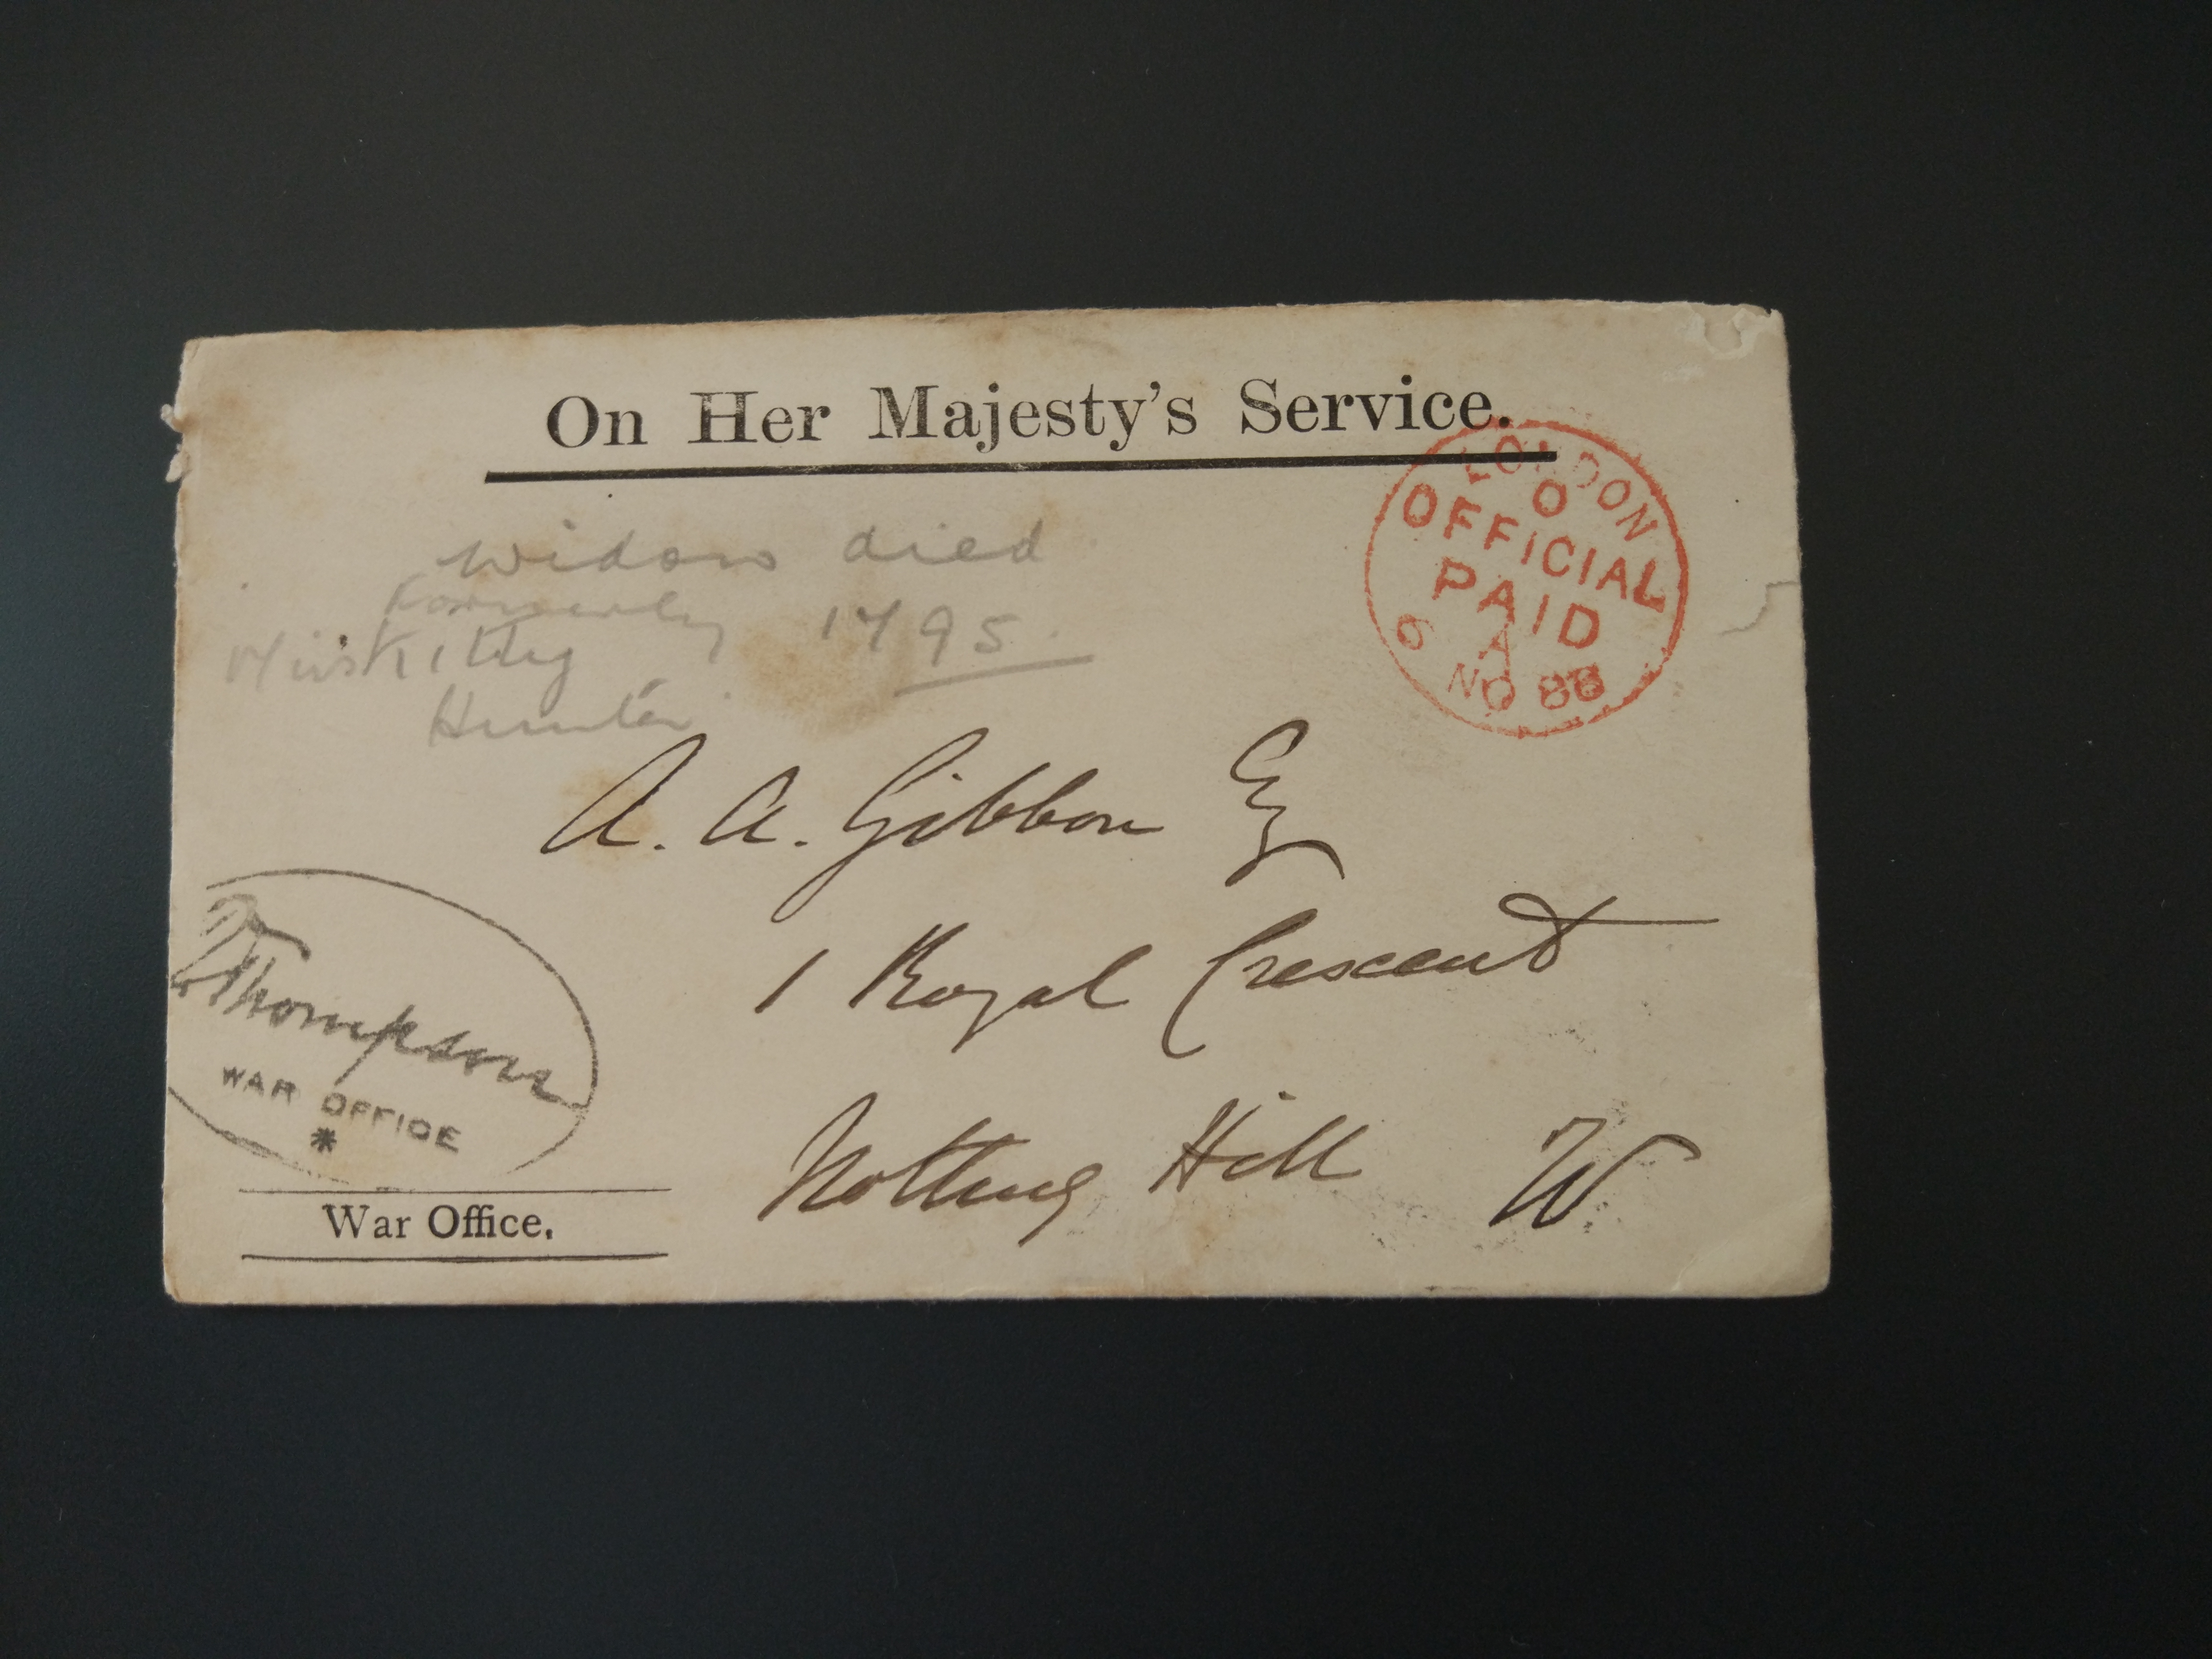 On Her Majesty's Service.
LONDON
O
OFFICIAL
PAID
A
6 NO 88
widow died
formerly 1795.
Miss Kitty
Hunter
A. A. Gibbon Esq
1 Royal Crescent
Notting Hill W
Thompson
WAR OFFICE
*
War Office.